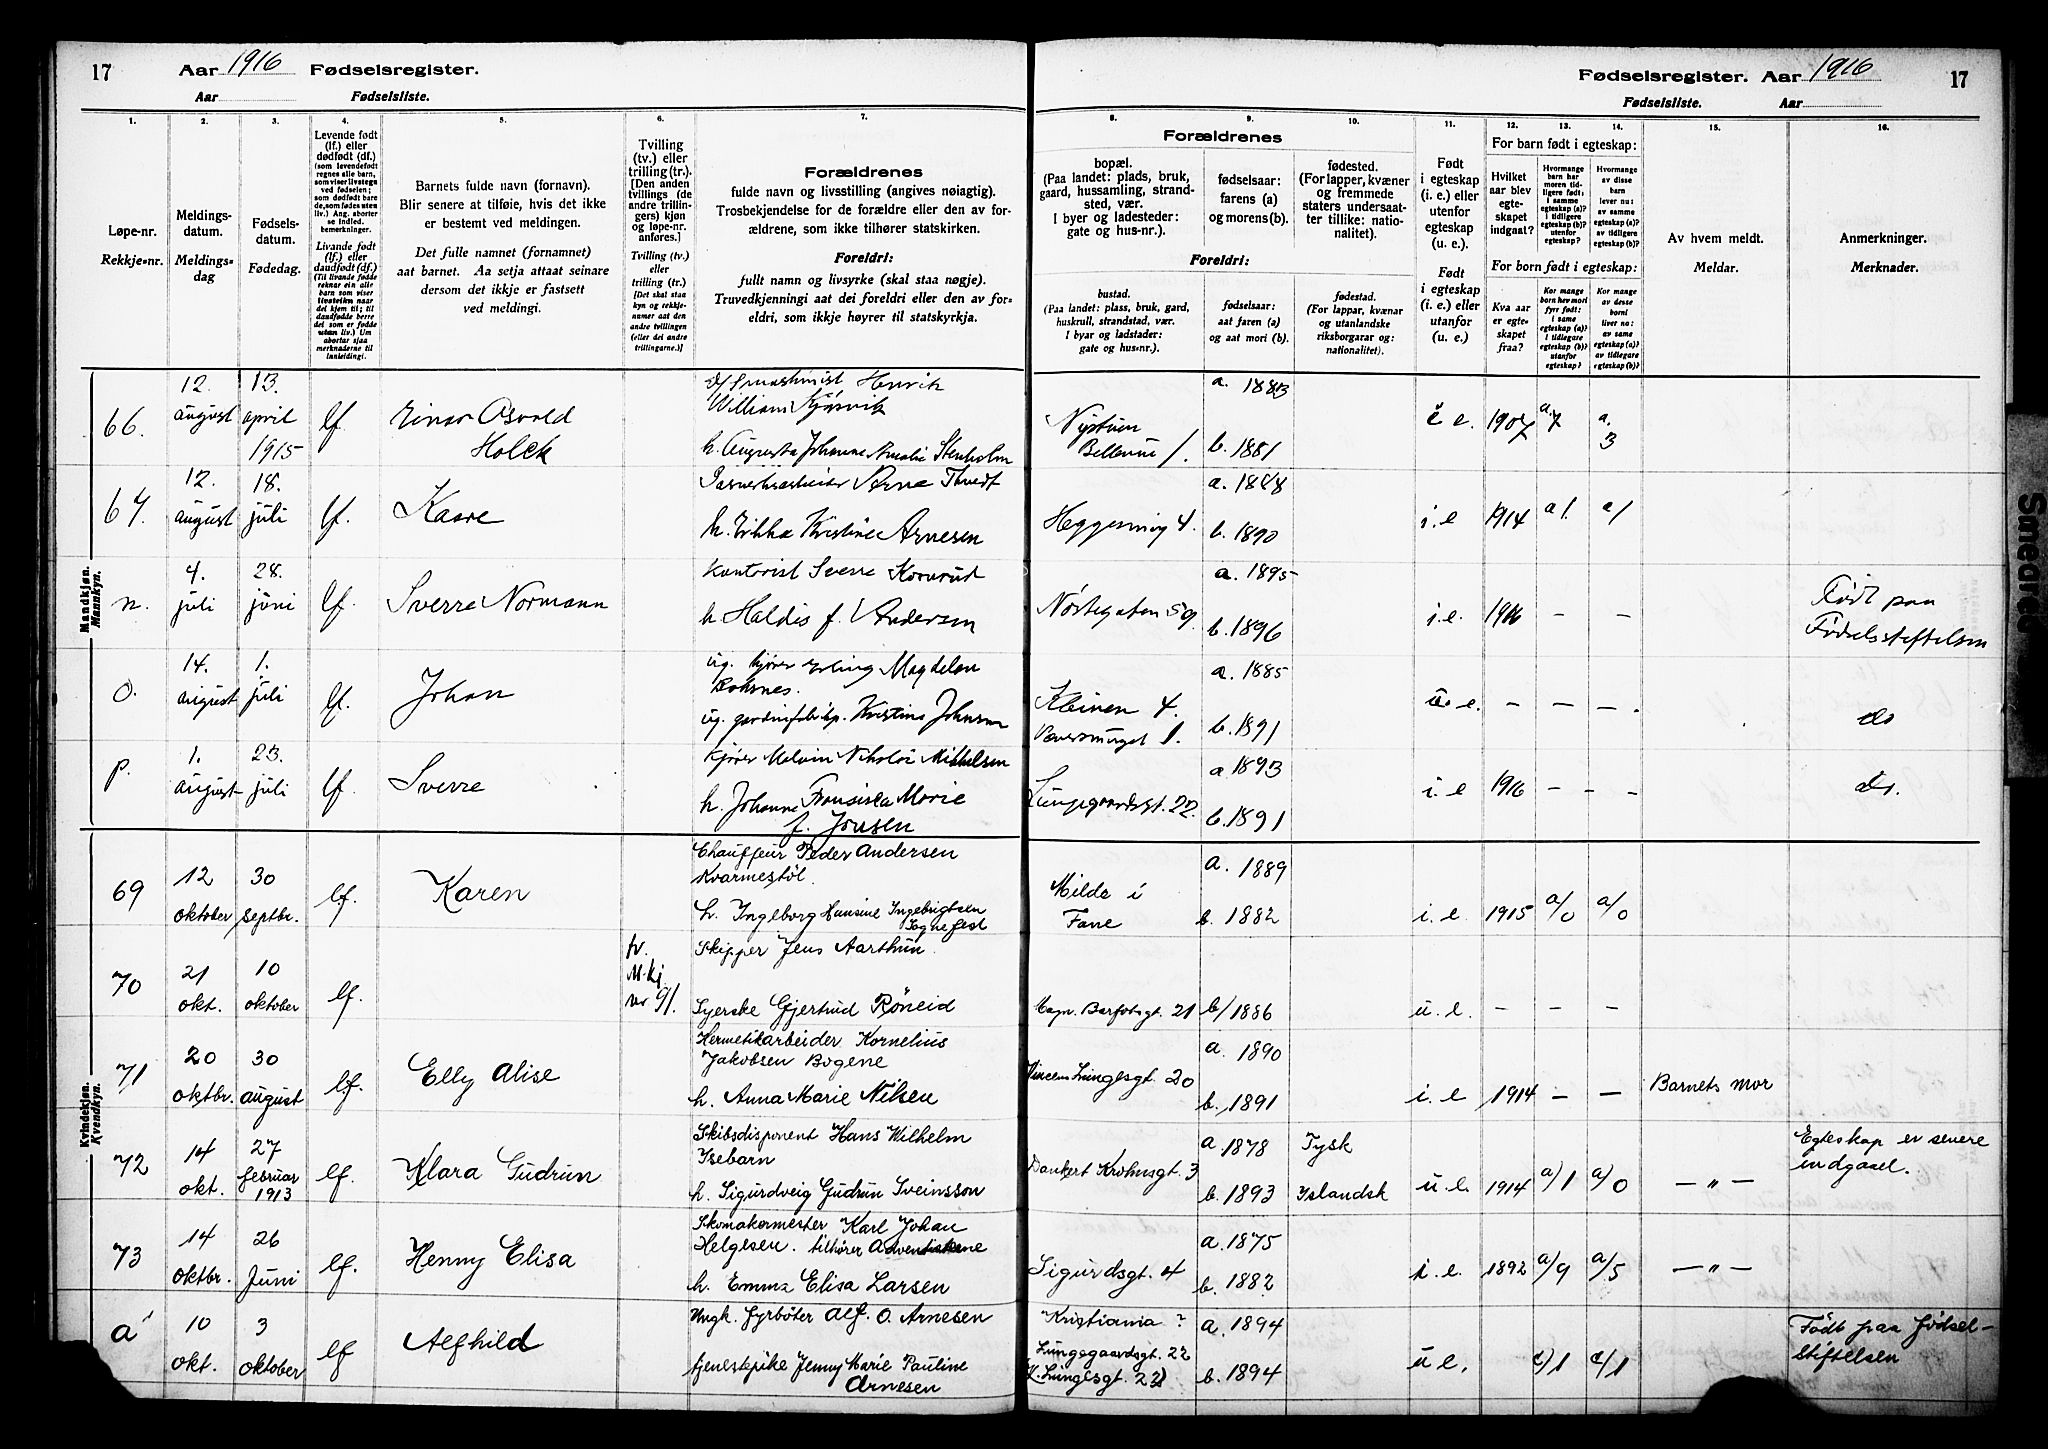 17
Aar 1916 Fødselsregister.
Aar Fødselsliste.
Fødselsregister. Aar 1916
17
Fødselsliste. Aar
1. 2. 3. 4. 5. 6. 7. 8. 9. 10. 11. 12. 13. 14. 15. 16.
Løpe-nr.
Rekkje-nr.
Meldings-
datum.
Meldings-
dag
Fødsels-
datum.
Fødedag.
Levende født
(lf.) eller
dødfødt (df.)
(som levendefødt
regnes alle barn,
som viser livstegn
ved fødselen;
som dødfødt bare
de, som fødes uten
liv.) Ang. aborter
se indled.
bemerkninger.
Livande født
(lf.) eller
daudfødt (df.)
(Til livande fødde
reknar ein alle
born som viser
livsteikn naar
dei kjem til; til
daudfødde berre
dei som er fødde
utan liv.) Um
abortar sjaa
merknaderne til
innleidingi.
Barnets fulde navn (fornavn).
Blir senere at tilføie, hvis det ikke
er bestemt ved meldingen.
Det fulle namnet (fornamnet)
aat barnet. Aa setja attaat seinare
dersom det ikkje er fastsett
ved meldingi.
Tvilling
(tv.) eller
trilling (tr.)
[Den anden
tvillings (de
andre trillin-
gers) kjøn
og løpe-nr.
anføres.]
Tvilling (tv.)
eller
trilling (tr.)
[Det skal staa
kyn og rekkje-
numer aat den
andre tvillingen
(eller dei andre
trillingarne.)]
Forældrenes
fulde navn og livsstilling (angives nøiagtig).
Trosbekjendelse for de forældre eller den av for-
ældrene, som ikke tilhører statskirken.
Foreldri:
fullt namn og livsyrke (skal staa nøgje).
Truvedkjenningi aat dei foreldri eller den av for-
eldri, som ikkje høyrer til statskyrkja.
Forældrenes
bopæl.
(Paa landet: plads, bruk,
gaard, hussamling, strand-
sted, vær.
I byer og ladesteder:
gate og hus-nr.).
fødselsaar:
farens (a)
og morens (b).
fødested.
(For lapper, kvæner
og fremmede
staters undersaat-
ter tillike: natio-
nalitet).
Foreldri:
bustad.
(Paa landet: plass, bruk, gard,
huskrull, strandstad, vær.
I byar og ladstader:
gate og hus-nr.).
fødselsaar:
aat faren (a)
og aat mori (b).
fødestad.
(For lappar, kvænar
og utanlandske
riksborgarar og:
nationalitet).
Født
i egteskap
(i. e.) eller
utenfor
egteskap
(u. e.).
Født
i egteskap
(i. e.) eller
utanfor
(u. e.).
For barn født i egteskap:
Hvilket
aar blev
egte-
skapet
indgaat?
Hvormange
barn har
moren tid-
ligere født:
i samme
egteskap (a)?
i tidligere
egteskap (b)?
utenfor
egteskap?
Hvormange
av disse
barn
lever nu:
av samme
egteskap (a)?
av tidligere
egteskap (b)?
For born født i egteskap:
Kva aar
er egte-
skapet
fraa?
Kor mange
born hev mori
fyrr født:
i same
egteskap (a)?
i tidlegare
egteskap (b)?
utanfor
egteskap?
Kor mange
av desse
borni
liver no:
av same
egteskap (a)?
av tidlegare
egteskap (b)?
Av hvem meldt.
Meldar.
Anmerkninger.
Merknader.
Mandkjøn.
Mannkyn.
66. 12. august 13. april 1915 lf. Einar Osvald Holck
Henrik
William Kjørvik
h. Augusta Johanne Amalie Stenholm
Nystuen
Bellevue 1. a. 1883 b. 1881 i e. 1907 a. 7 a. 3
67. 12. august 18. juli lf. Kaare
Arne Thvedt
h. Erikka Kristine Arnesen
Heggesmug 4. a. 1888 b. 1890 i. e 1914 a 1. a/
n. 4. juli 28. juni lf. Sverre Normann
Kontorist Sverre
h Haldis f. Andersen
Nøstegaten 59. a. 1895 b. 1896 i. e. 1916 — —
Født paa
Fødselsstiftelsen
o. 14. august 1. juli lf. Johan
ug. kjører Erling Magdelon
ug. Kristina Johnsen
Kleiven 4.
a. 1885 b. 1891 u. e. — — —. do
p. 1. august 23. juli lf. Sverre
Kjører Melvin Nikolai Mikkelsen
h. Johanne Fransiska Marie
f. Jonsen
Lungegaardsgt. 22. a 1893 b. 1891 i. e 1916 — — — do.
Kvindekjøn.
Kvendkyn.
69 12 oktober 30 septbr. lf. Karen
Chauffeur Peder Andersen
Kvarmestøl.
h. Ingeborg Hansine Ingebrigtsen
Sognefest
Milde i
Fane a. 1889 b. 1882 i. e. 1915 a/0 a/0
70 21 okt. 10 oktober lf. tv. M.kj. nr 91.
Skipper Jens Aarthun.
Syerske Gjertrud Røneid
Magn. Barfotsgt. 21 b/ 1886 u. e. — — —
71 20 oktbr. 30 august lf. Elly Alise
Hermetikarbeider Kornelius
Jakobsen Bogene
h. Anna Marie Nilsen
Vincens Lungesgt. 20 a. 1890 b. 1891 i. e 1914 — — Barnets mor
72 14 okt. 27 februar 1913 lf. Klara Gudrun
Skibsdisponent Hans Wilhelm
Isebarn
h. Sigurdveig Gudrun Sveinsson
Dankert Krohnsgt. 3 a. 1878 Tysk b. 1893 Islandsk u. e. 1914 a/1 a/0 — „ —
Egteskap er senere
indgaael.
73 14 oktbr. 26 Juni lf. Henny Elisa
Skomakermester Karl Johan
Helgesen. tilhører Adventiskene
h. Emma Elisa Larsen
Sigurdsgt. 4 a. 1875 b. 1882 i. e. 1892 a/9 a/5 — „ —
a' 10 okt. 3 oktober lf Alfhild
Ungk. Fyrbøter Alf. O. Arnesen
tjenestepike Jenny Marie Pauline
Arnesen
Kristiania ?
Lungegaardsgt. 22
K. Lungesgt. 22) a. 1894 b. 1894 u e. c/1 c/1
Født paa Fødsel-
stiftelsen